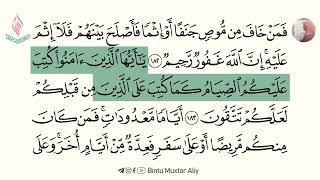 فَمَنْ خَافَ مِن مُّوصٍ جَنَفًا أَوْ إِثْمًا فَأَصْلَحَ بَيْنَهُمْ فَلَآ إِثْمَ
عَلَيْهِ ۚ إِنَّ ٱللَّهَ غَفُورٌ رَّحِيمٌ ١٨٢ يَٰٓأَيُّهَا ٱلَّذِينَ ءَامَنُوا۟ كُتِبَ
عَلَيْكُمُ ٱلصِّيَامُ كَمَا كُتِبَ عَلَى ٱلَّذِينَ مِن قَبْلِكُمْ
لَعَلَّكُمْ تَتَّقُونَ ١٨٣ أَيَّامًا مَّعْدُودَٰتٍ ۚ فَمَن كَانَ
مِنكُم مَّرِيضًا أَوْ عَلَىٰ سَفَرٍ فَعِدَّةٌ مِّنْ أَيَّامٍ أُخَرَ ۚ وَعَلَى
Bintu Muxtor Aliy